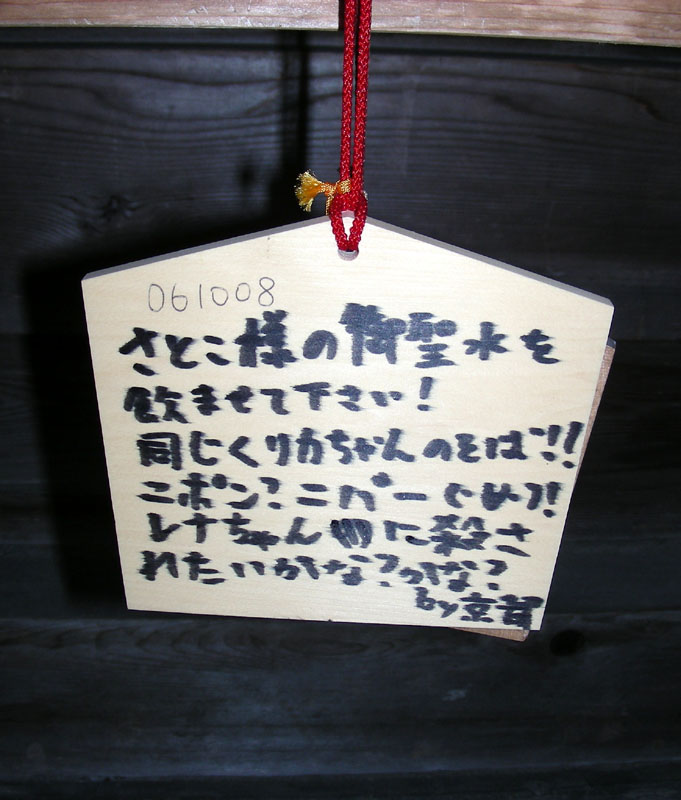 061008
さとこ様の御聖水を
飲ませて下さい!
同じくリカちゃんのそば!!
ニポン?
レナちゃんに殺さ
れたいかな?かな?
by 京